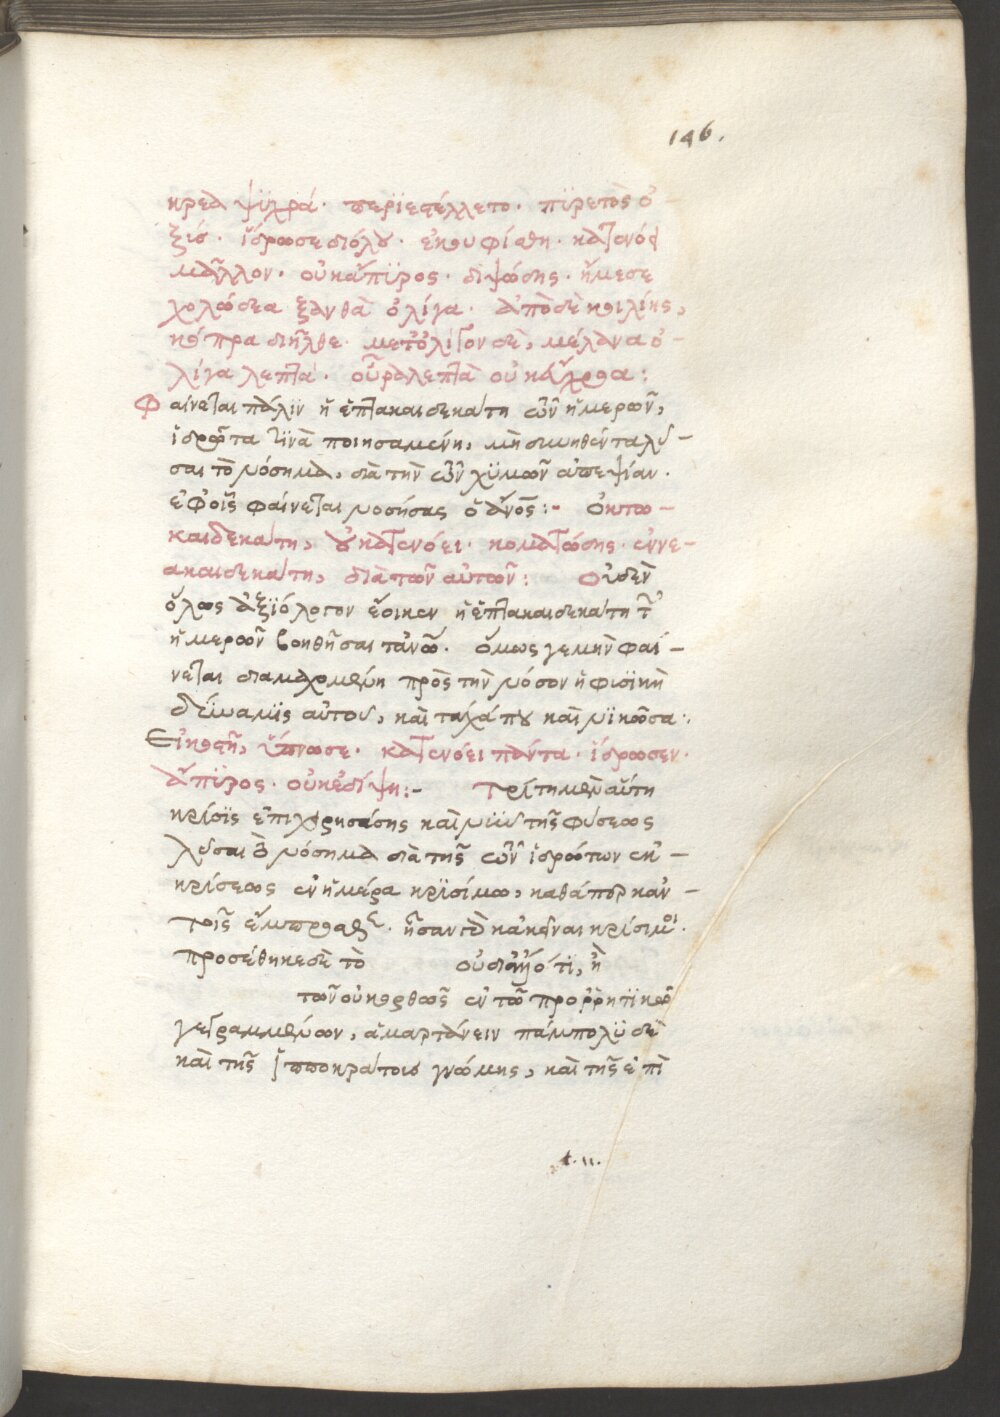 146.
κρεα ψϋχρά· περϊεςέλλετο· πϋρετὸς ὀ-
ξύς· ἵδρωσε διόλου· ἐκουφίσθη· κατενόει
μᾶλλον· οὐκ ἄπϋρος· διψώδης· ἤμεσε
χολώδεα ξανθὰ ὀλίγα· ἀπὸ δὲ κοιλίης,
κόπρα διῆλθε· μετ' ὀλίγον δὲ, μέλανα ὀ-
λίγα λεπτά· οὖρα λεπτὰ οὐκ εὔχροα:
Φαίνεται πάλϊν ἡ ἑπτακαιδεκάτη τῶν ἡμερῶν,
ἱδρῶτα τϊνὰ ποιησαμένη, μὴ δυνηθέντα λῦ-
σαι τὸ νόσημα, διὰ τὴν τῶν χϋμῶν ἀπεψίαν·
ἐφ' οἷς φαίνεται νοσήσας ὁ ἄνος:- Οκτω-
καιδεκάτη, οὐ κατενόει· κωματώδης· ἐννε-
ακαιδεκάτη, διὰ τῶν αὐτῶν: Οὐδὲν
ὅλως ἀξϊόλογον ἔοικεν ἡ ἑπτακαιδεκάτη τ
ἡμερῶν βοηθῆσαι τἀνω· ὅμως γε μὴν φαί-
νεται διαμαχομένη πρὸς τὴν νόσον ἡ φυσϊκὴ
δύναμϊς αὐτοῦ, καὶ τάχά που καὶ νϊκῶσα:
Εἰκοςῆ, ὕπνωσε· κατενόει πάντα· ἵδρωσεν·
ἄπϋρος· οὐκ ἐδίψη:- Τρίτη μὲν αὕτη
κρίσϊς ἐπιχειρησάσης καὶ νῦν τῆς φύσεως
λῦσαι τὸ νόσημα διὰ τῆς τῶν ἱδρώτων ἐκ-
κρίσεως ἐν ἡμέρα κρϊσίμω, καθάπερ κἀν
τοῖς ἔμπροσθεν· ἦσαν δὲ κἀκεῖναι κρίσιμοι·
προσέθηκε δὲ τὸ οὐ διάνοτϊ, ἢ
τῶν οὐκ ὀρθῶς ἐν τῶ προρρητϊκῶ
γεγραμμένων, ἁμαρτάνειν πάμπολϋ δεῖ
καὶ τῆς ἱπποκράτους γνώμης, καὶ τῆς ἐπὶ